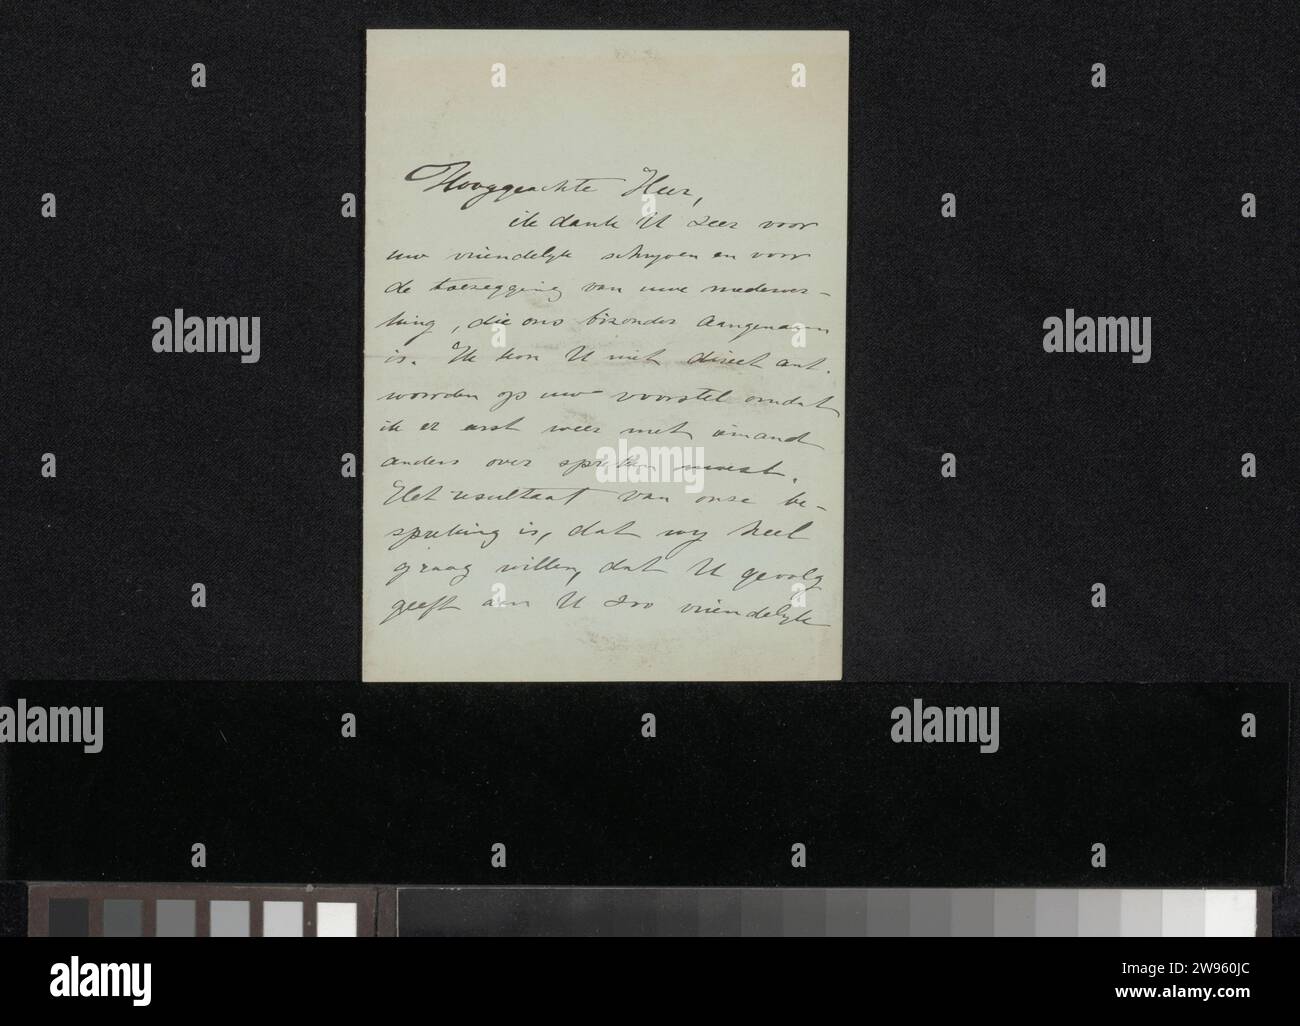 Hooggeachte Heer,
ik dank U zeer voor
uw vriendelijk schrijven en voor
de toezegging van uwe medewer-
king, die ons bizonder aangenaam
is. Ik kon U niet direct ant-
woorden op uw voorstel omdat
ik er eerst weer met iemand
anders over spreken moest.
Het resultaat van onze be-
spreking is, dat wij heel
graag willen, dat U gevolg
geeft aan U zoo vriendelijk
alamy
Image ID: 2W960JC
www.alamy.com